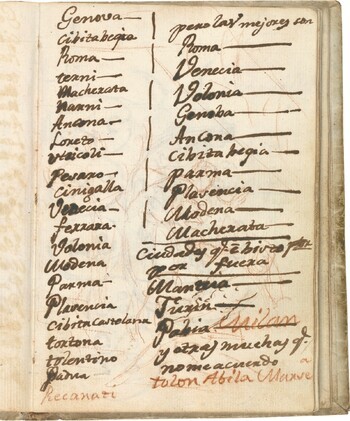 Genova
cibita begia
Roma
terni
Macherata
Narni
Ancona
Loreto
vricoli
Pesaro
cinigalla
Venecia
ferrara
Volonia
Modena
Parma
Plavencia
cibita castelana
tortona
tolentino
Padua
Recanati
pero las mejores son
Roma
Venecia
Volonia
Genoba
Ancona
Cibita begia
parma
Plasencia
Modena
Macherata
ciudades q.e e bisto
por fuera
Mantua
Turin
Pabia Milan
y otras muchas q.
no me acuerdo
tolon Abila